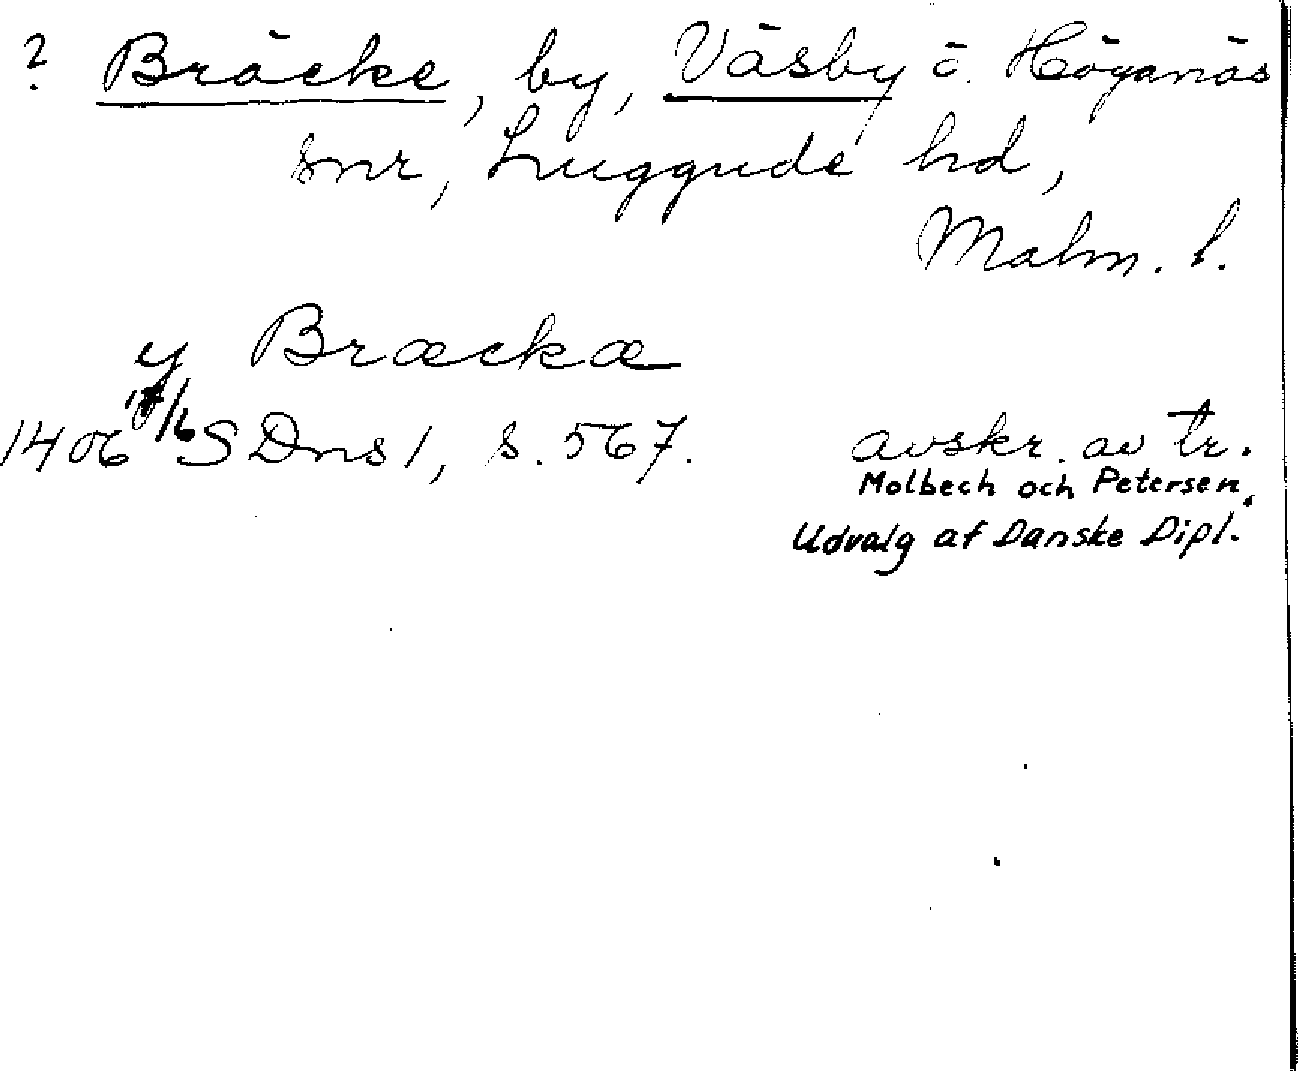 ? Bräcke, by, Väsby o. Höganäs
snr, Luggude hd,
Malm. l.
y Bræckæ
1406 17/6 SDns 1, s. 567. avskr. av tr.
Molbech och Petersen,
Udvalg af Danske Dipl.